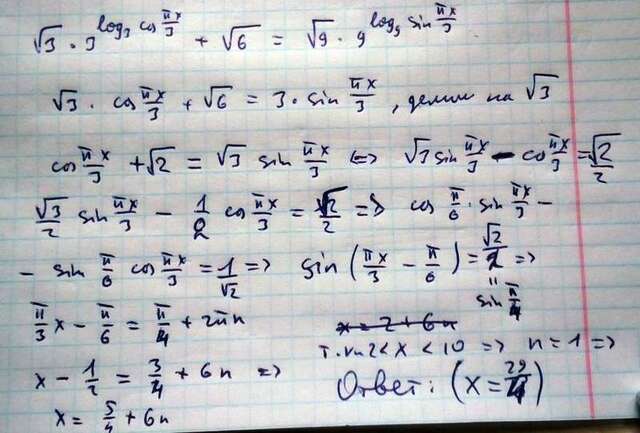 √3 · 3^(log₃ cos πx/3) + √6 = √9 · 9^(log₉ sin πx/3)
√3 · cos πx/3 + √6 = 3 · sin πx/3, делим на √3
cos πx/3 + √2 = √3 sin πx/3 <=> √3 sin πx/3 - cos πx/3 = √2/2
√3/2 sin πx/3 - 1/2 cos πx/3 = √2/2 => cos π/6 · sin πx/3 -
- sin π/6 cos πx/3 = 1/√2 => sin (πx/3 - π/6) = √2/2 =>
= sin π/4
π/3 x - π/6 = π/4 + 2πn
x = 2 + 6n
т.к. 2 < x < 10 => n = 1 =>
x - 1/2 = 3/4 + 6n =>
Ответ: (x = 29/4)
x = 5/4 + 6n